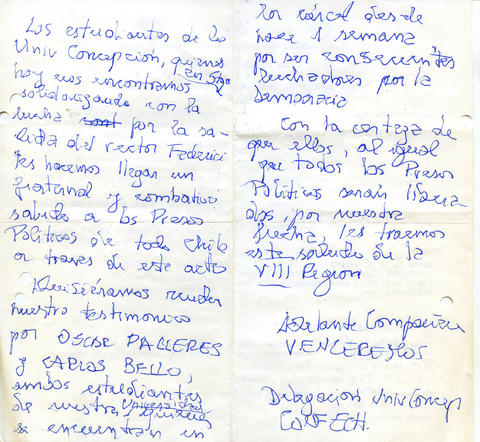 Los estudiantes de la
Univ Concepción, quienes
hoy nos encontramos en Stgo
solidarizando con la
lucha por la sa-
lida del rector Federici
les hacemos llegar un
fraternal y combativo
saludo a los Presos
Políticos de todo Chile
a traves de este acto
Quisieramos rendir
nuestro testimonio
por OSCAR PALLERES
y CARLOS BELLO,
ambos estudiantes
de nuestra Universidad
se encuentran en
la cárcel desde
hace 1 semana
por ser consecuentes
luchadores por la
democracia
Con la certeza de
que ellos, al igual
que todos los Presos
Políticos serán libera
dos, por nuestra
lucha, les traemos
este saludo de la
VIII Region
Adelante Compañeros
VENCEREMOS
Delegacion Univ Concep
CONFECH.